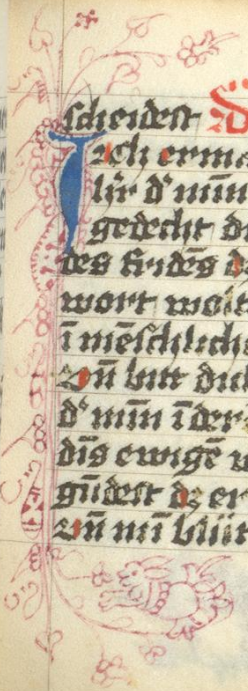 scheidest
Ich erma
hr̄ d' min̄
gedecht di
des fridēs d
wort wolt
ī mēschlich
vn̄ bitt dich
d' min̄ ī der
dis ewigē w
gūdest dz er
vn̄ min̄ blūt